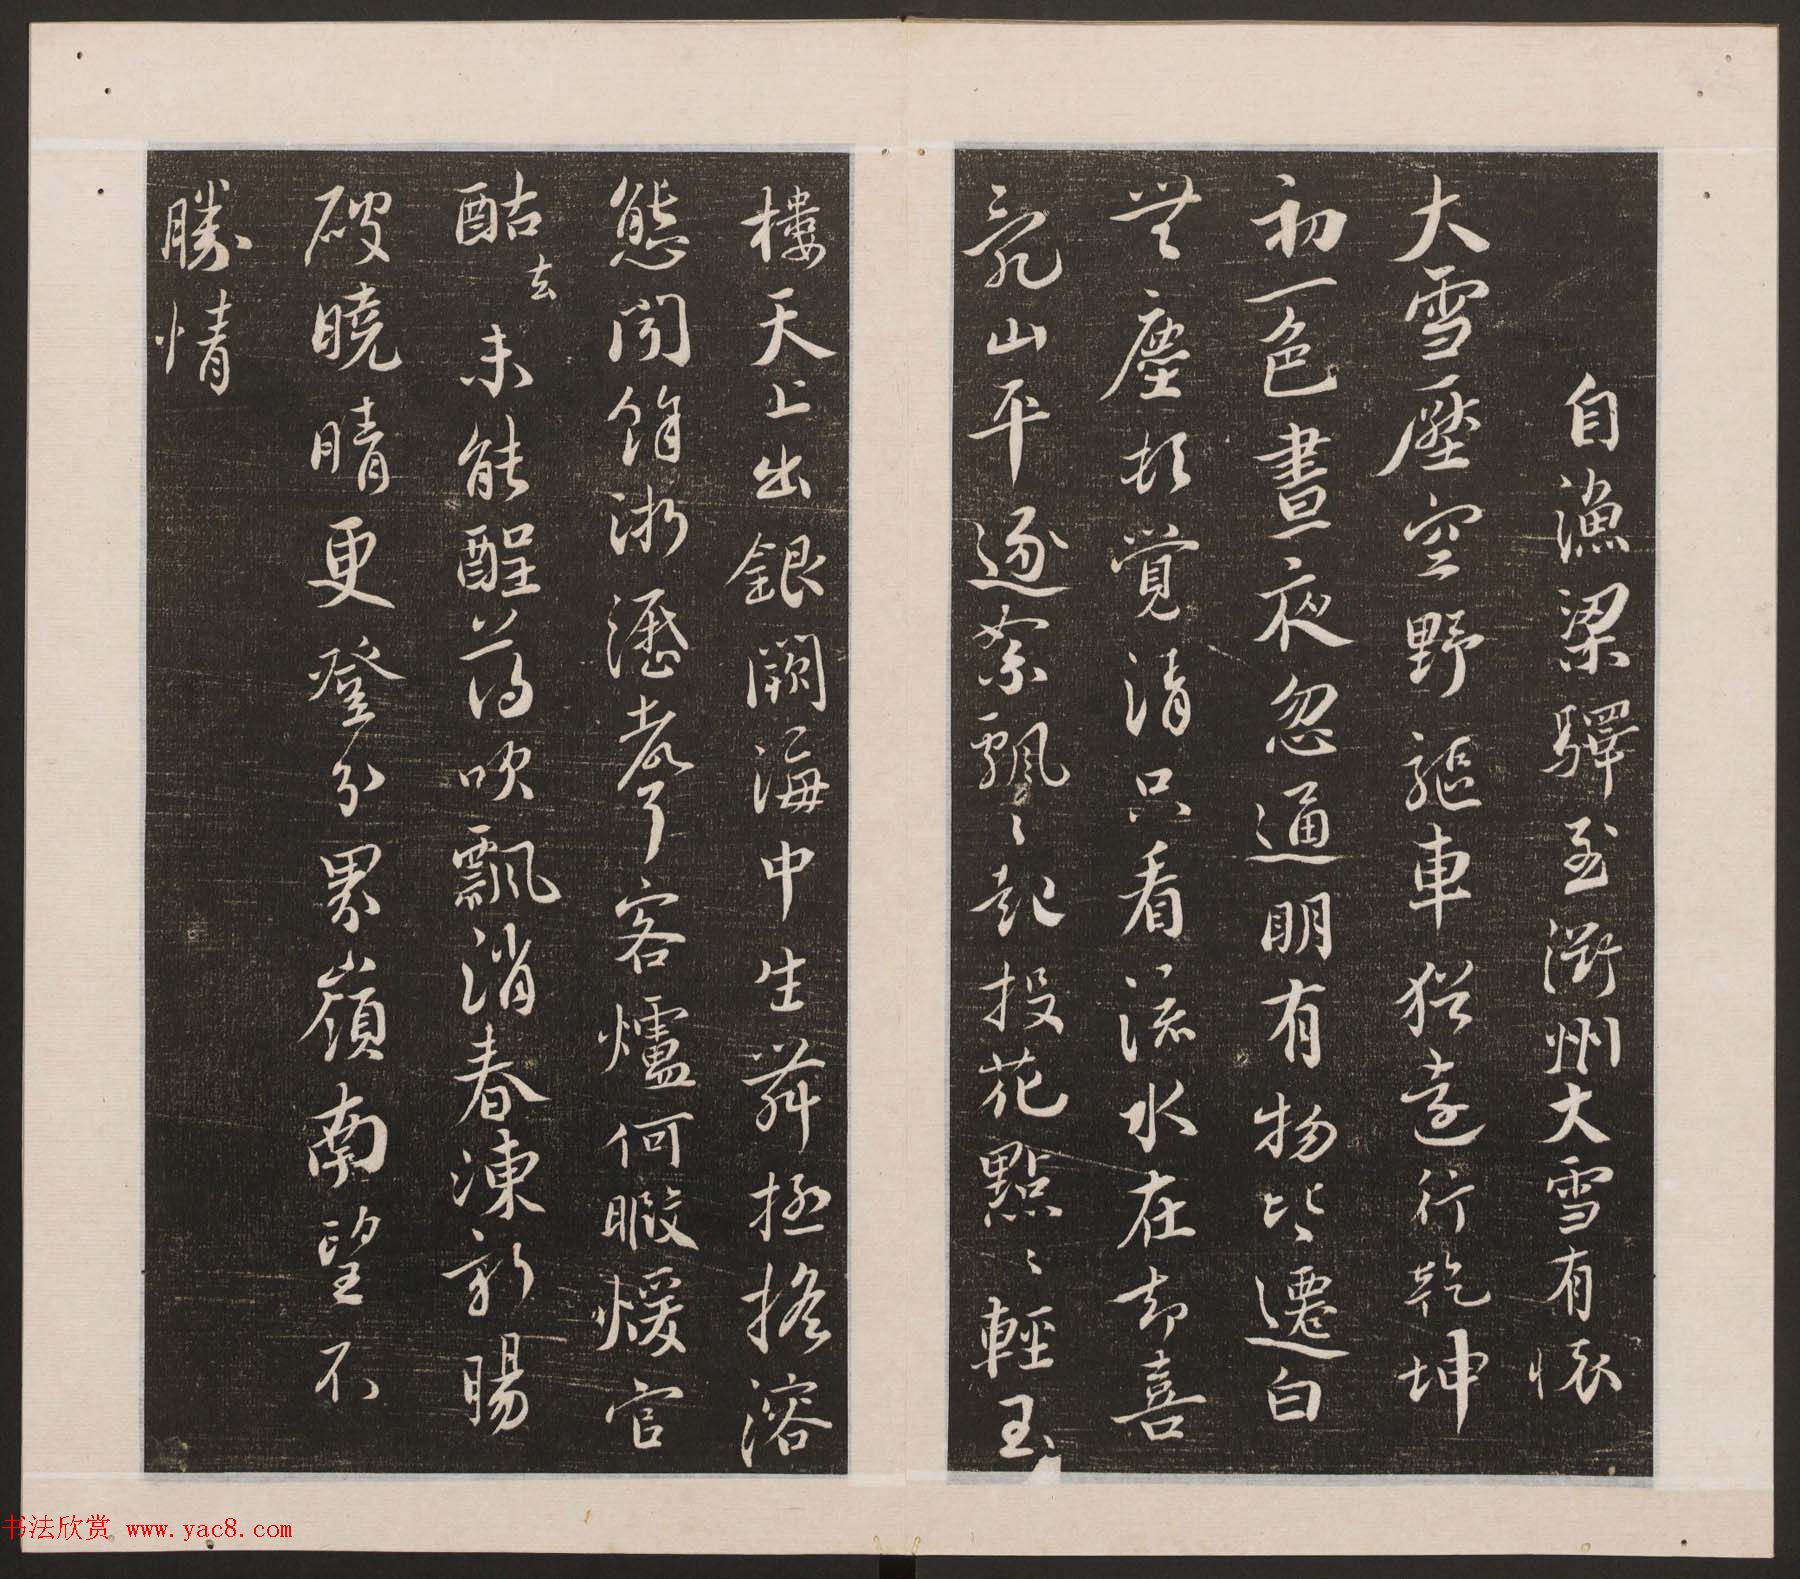 自漁梁驛至衢州大雪有懷
大雪壓空野驅車猶遠行乾坤
初一色晝夜忽通明有物皆遷白
無塵頓覺清只看流水在却喜
亂山平逐絮飄〻起投花點〻輕玉
樓天上出銀闕海中生舞極搖溶
態聞餘淅瀝聲客爐何暇煖官
酤去未能醒薄吹飄消春凍新暘
破曉晴更登分界嶺南望不
勝情
书法欣赏 www.yac8.com